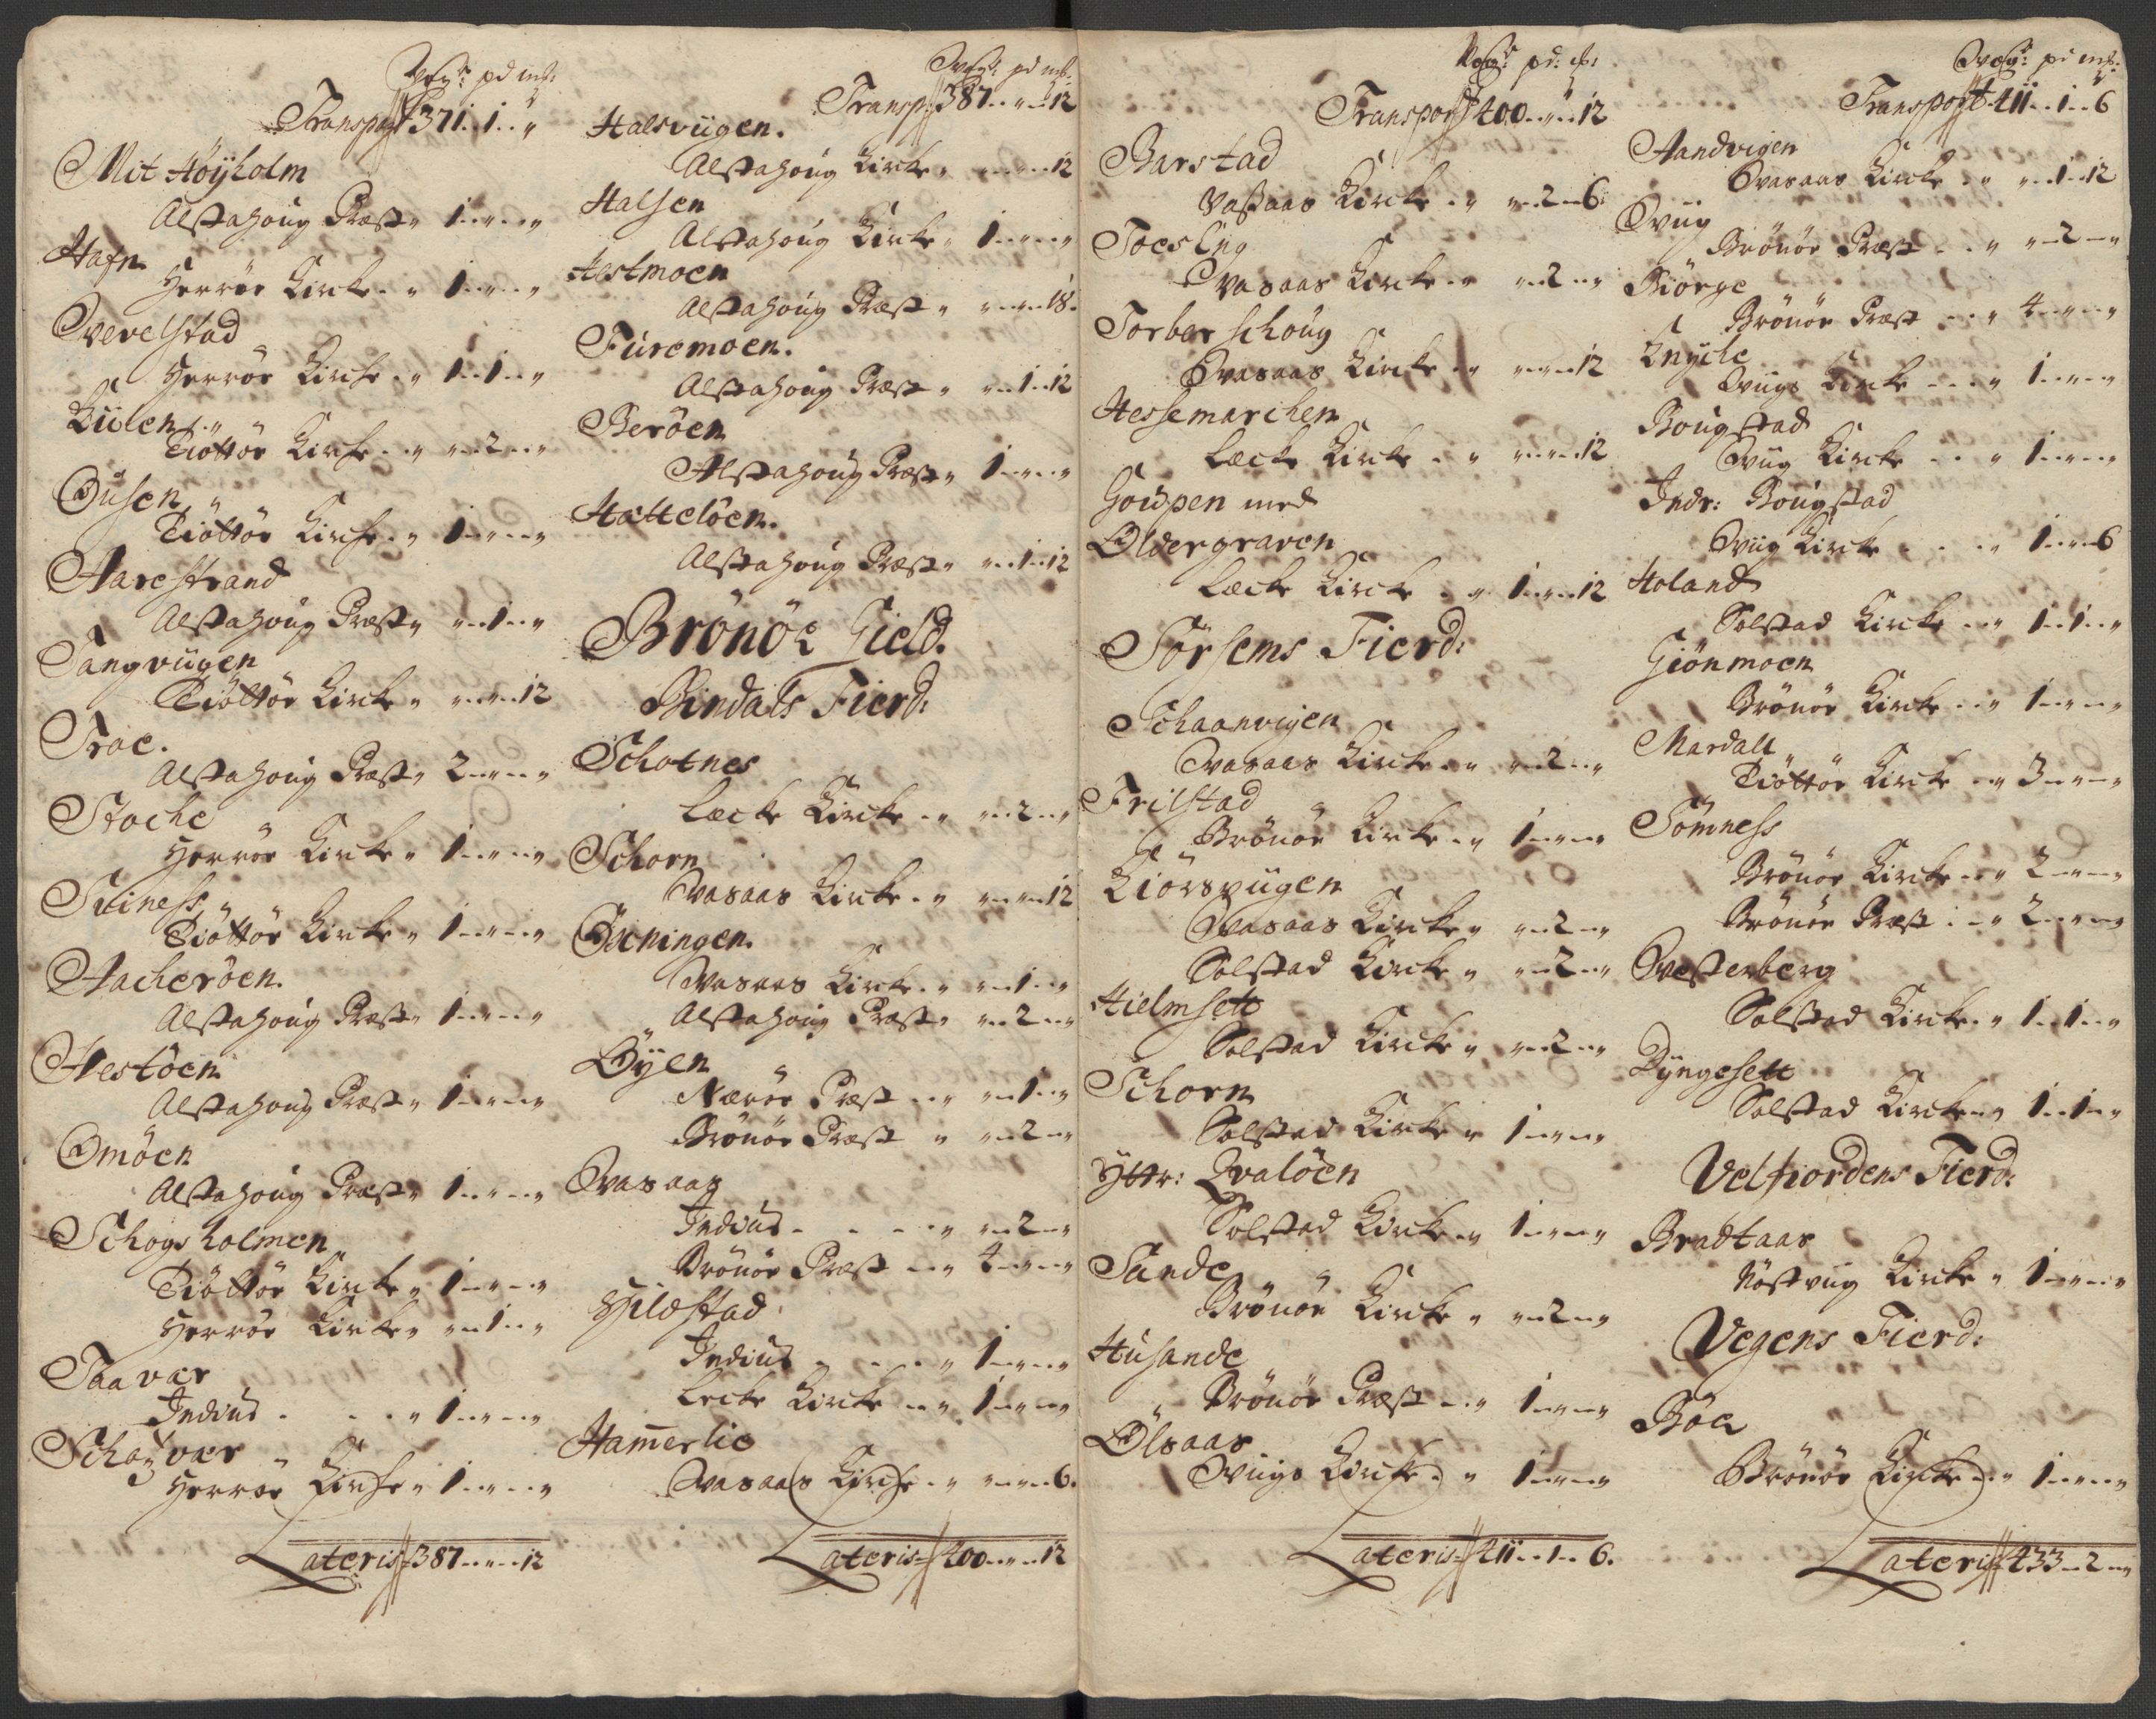 Wog: pd mk:
Transport 371..1.."
Mit Höyholm
Alstahoug Præst " 1..".."
Hafn
Herröe Kircke.. " 1..".."
Sverelstad
Herröe Kircke.. " 1..1.."
Külen
Tiöttöe Kircke.. " "..2.."
Ousen
Tiöttöe Kircke.. " 1..".."
Aarestrand
Alstahoug Præst " "..1.."
Tangviigen
Tiöttöe Kircke " ".."..12
Troe.
Alstahoug Præst " 2..".."
Stoche
Herröe Kircke " 1..".."
Stiness
Tiöttöe Kircke " 1..".."
Aacheröen.
Alstahoug Præst " 1..".."
Hestöen
Alstahoug Præst " 1..".."
Omöen
Alstahoug Præst " 1..".."
Schogsholmen
Tiöttöe Kircke " 1..".."
Herröe Kircke " "..1.."
Taavær
Indius . . . " 1..".."
Schogvær
Herröe Kircke " 1..".."
Lateris 387.."..12
Wog: pd mk:
Transp: 387.."..12
Halsviigen.
Alstahoug Kircke " ".."..12
Halsen
Alstahoug Kircke " 1..".."
Hestmoen
Alstahoug Præst " ".."..18.
Füremoen.
Alstahoug Præst " "..1..12
Beröen
Alstahoug Præst " 1..".."
Hatteløen.
Alstahoug Præst " "..1..12
Brönöe Gield.
Bindals Fierd:
Schotnes
Læcke Kircke .. " "..2.."
Schorn
Vasaas Kircke.. " ".."..12
Öxningen.
Vasaas Kircke.. " "..1.."
Alstahoug Præst " "..2.."
Öyen
Næröe Præst ... " "..1.."
Brönöe Præst " "..2.."
Vasaas
Indius . . . . " "..2.."
Brönöe Præst ... " 4..".."
Hildstad
Indius . . . . " 1..".."
Lecke Kircke ... " 1..".."
Ham̄erlie
Vasaas Kircke .. " ".."..6.
Lateris 400.."..12
Wog: pd: mk:
Transport 400.."..12
Barstad
Vassaas Kircke .. " "..2..6:
Toes Eng
Vasaas Kircke .. " "..2.."
Torberschoug
Vasaas Kircke .. " ".."..12
Hessemarchen
Læcke Kircke .. " ".."..12
Goüpen med
Oldergraven
Læcke Kircke .. " 1.."..12
Sörsems Fierd:
Schaanvigen
Vasaas Kircke .. " "..2.."
Frilstad
Brönöe Kircke .. " 1..".."
Kiörsviigen
Vasaas Kircke " "..2.."
Solstad Kircke " "..2.."
Hielmsett
Solstad Kircke " "..2.."
Schorn
Solstad Kircke " 1..".."
Yttr: Qvaløen
Solstad Kircke .. " 1..".."
Sande
Brönöe Kircke " "..2.."
Hüsande
Brönöe Præst ... " 1..".."
Olsaas
Viigs Kircke .. " 1..".."
Lateris 411..1..6.
Wog: pd mk:
Transport 411..1..6
Aandvigen
Vasaas Kircke .. " "..1..12
Viig
Brönöe Præst ... " "..2.."
Biörge
Brönöe Præst ... " 4..".."
Knyche
Viigs Kircke .... " 1..".."
Bougstad
Viig Kircke .. . " 1..".."
Indr: Bougstad
Viig Kircke . . . " 1.."..6
Holand
Solstad Kircke ... " 1..1.."
Giönmoen
Brönöe Kircke ... " 1..".."
Mardall
Tiöttöe Kircke .. " 3..".."
Sömness
Brönöe Kircke ... " 2..".."
Brönöe Præst ... " 2..".."
Vesterberg
Solstad Kircke .. " 1..1.."
Dyngesett
Solstad Kircke .. " 1..1.."
Velfiordens Fierd:
Bradtaas
Nöstviig Kircke " 1..".."
Vegens Fierd:
Böe
Brönöe Kircke ... " 1..".."
Lateris 433..2.."